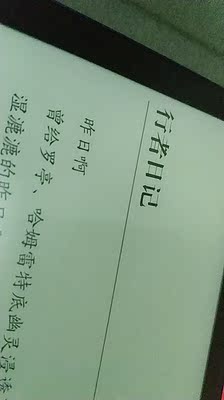 行者日记
昨日啊
曾给罗亭、哈姆雷特底幽灵浸
湿漉漉的昨日